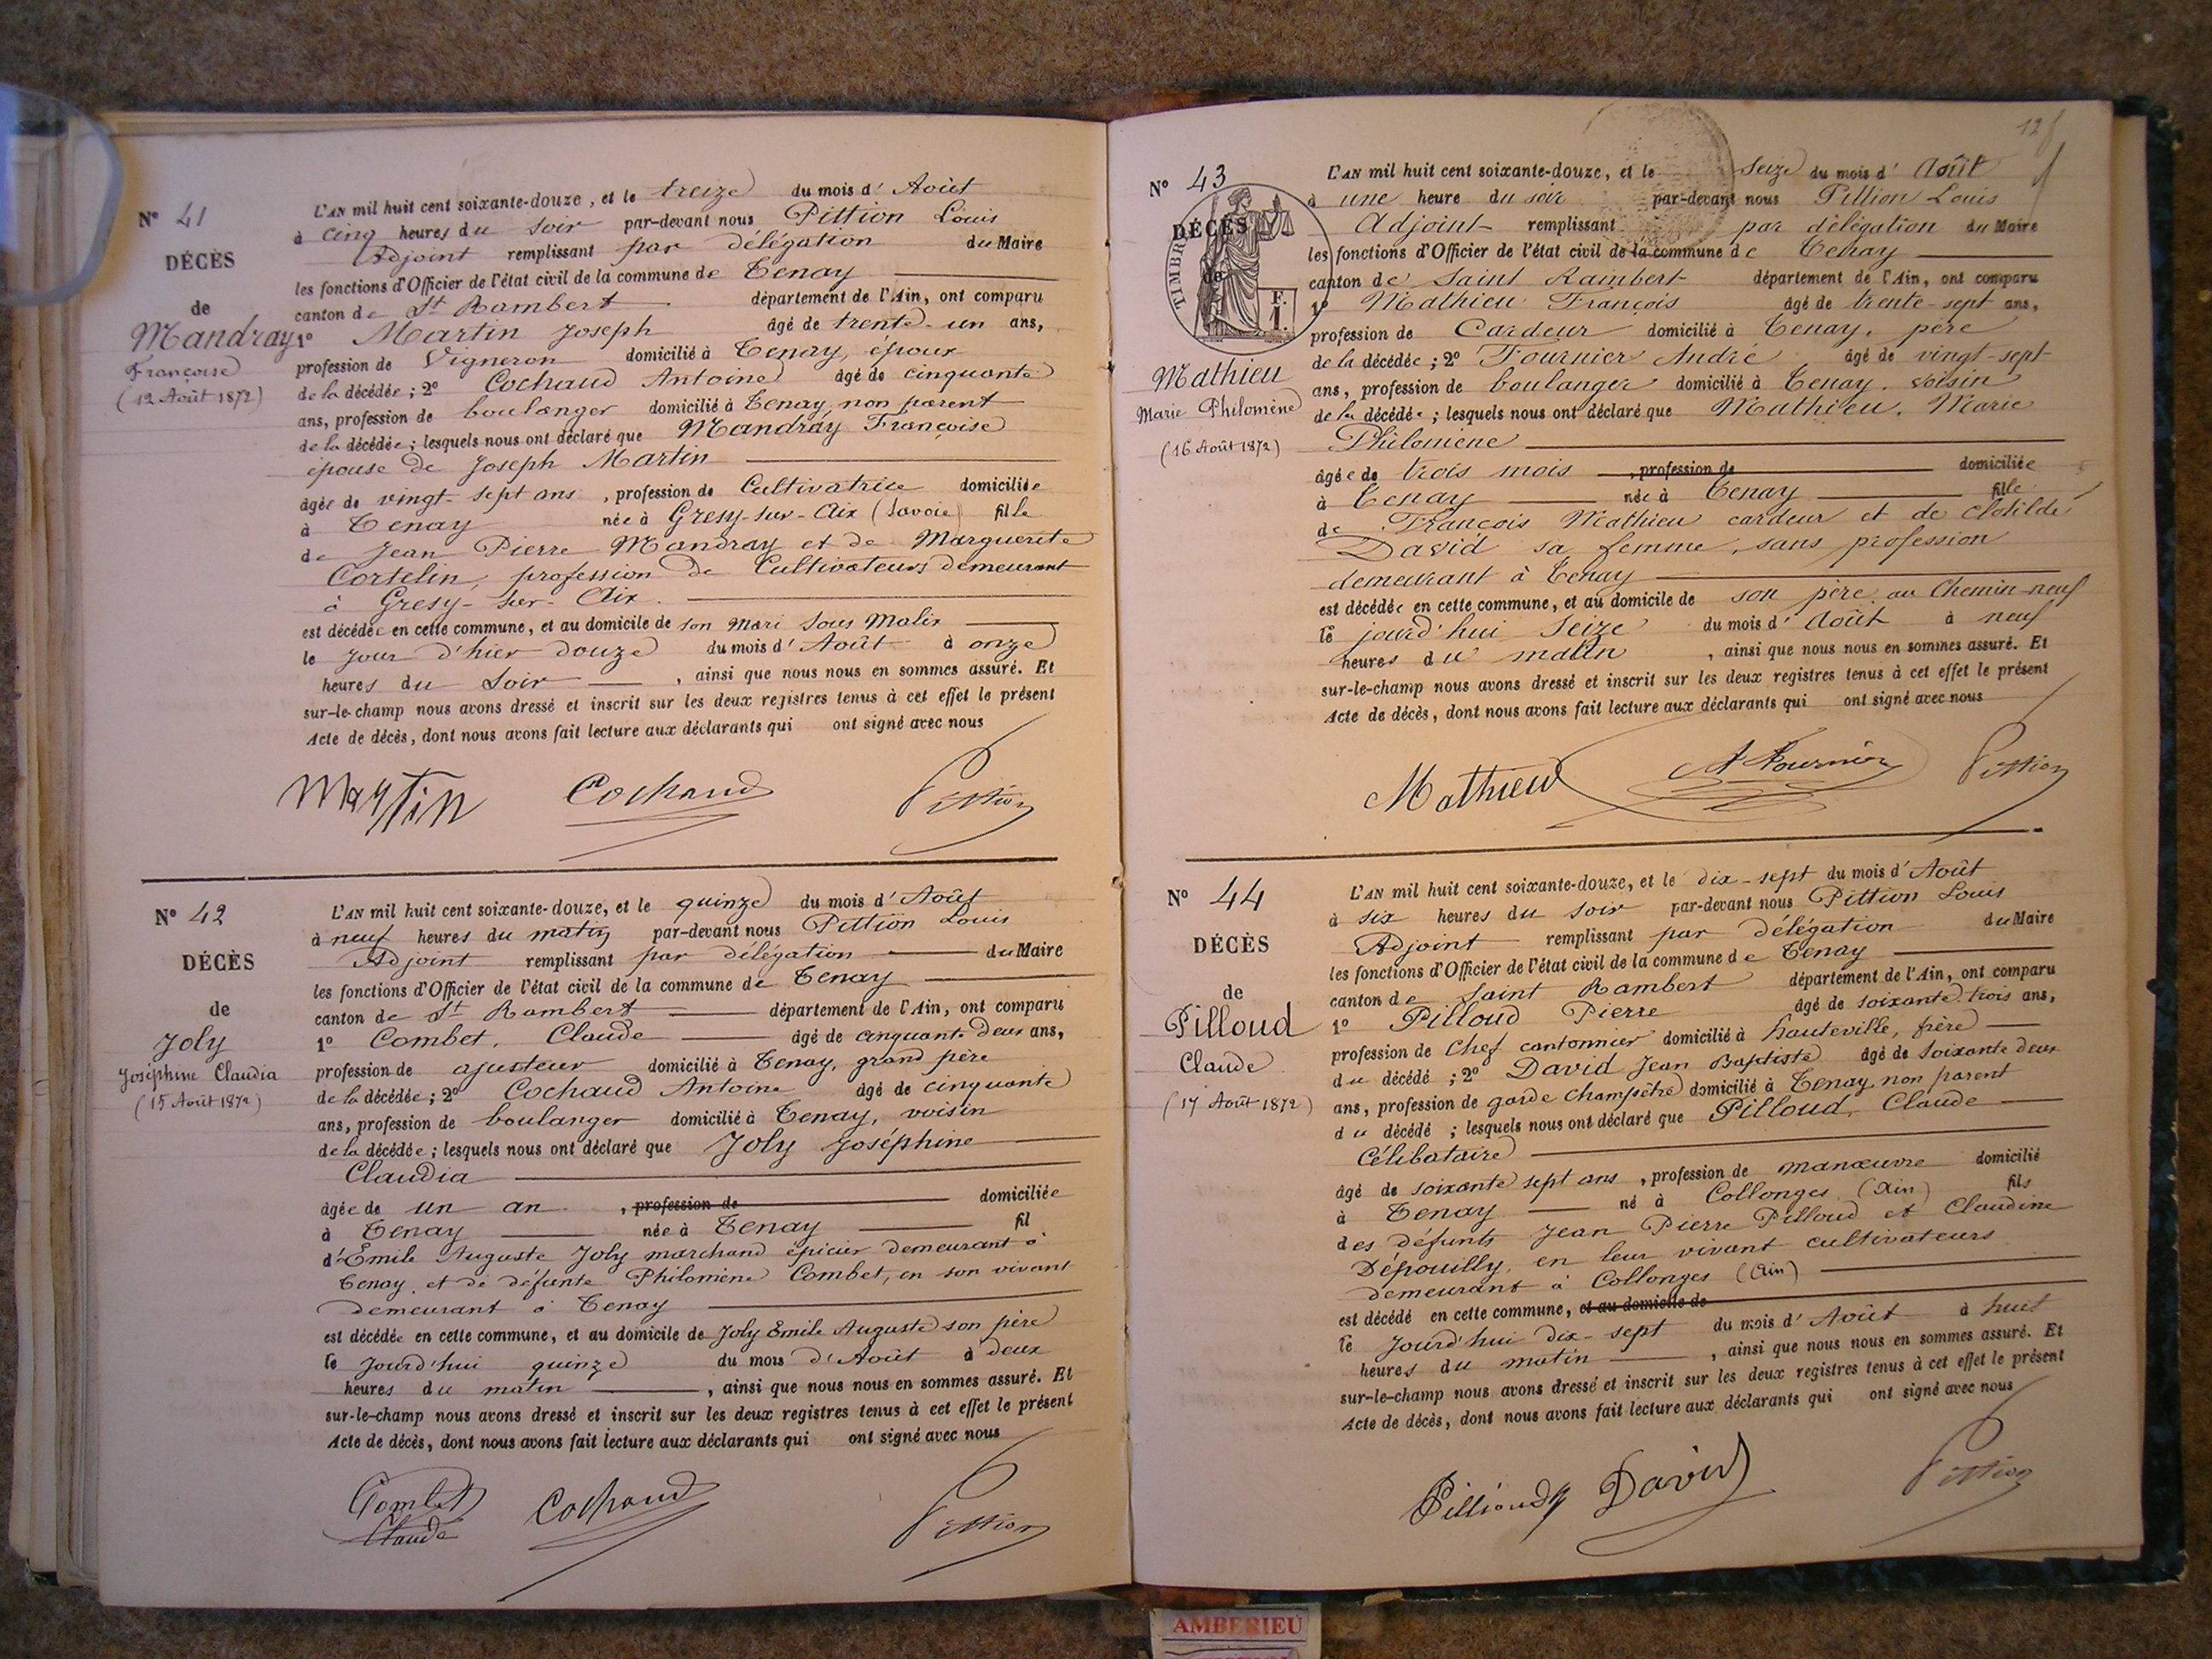 N° 41
DÉCÈS
de
Mandray
Françoise
(12 Août 1872)
L'AN mil huit cent soixante-douze, et le treize du mois d'Août
à cinq heures du soir par-devant nous Pittion Louis
Adjoint remplissant par délégation du Maire
les fonctions d'Officier de l'état civil de la commune de Tenay
canton de St Rambert département de l'Ain, ont comparu
1° Martin Joseph âgé de trente-un ans,
profession de Vigneron domicilié à Tenay, époux
de la décédée; 2° Cochaud Antoine âgé de cinquante
ans, profession de boulanger domicilié à Tenay, non parent
de la décédée; lesquels nous ont déclaré que Mandray Françoise
épouse de Joseph Martin
âgée de vingt-sept ans, profession de Cultivatrice domiciliée
à Tenay née à Gresy-sur-Aix (Savoie) fille
de Jean Pierre Mandray et de Marguerite
Cortelin, profession de Cultivateurs demeurant
à Gresy-sur-Aix.
est décédée en cette commune, et au domicile de son mari Sous Malix
le jour d'hier douze du mois d'Août à onze
heures du soir, ainsi que nous nous en sommes assuré. Et
sur-le-champ nous avons dressé et inscrit sur les deux registres tenus à cet effet le présent
Acte de décès, dont nous avons fait lecture aux déclarants qui ont signé avec nous
Martin Cochaud Pittion
N° 42
DÉCÈS
de
Joly
Joséphine Claudia
(15 Août 1872)
L'AN mil huit cent soixante-douze, et le quinze du mois d'Août
à neuf heures du matin par-devant nous Pittion Louis
Adjoint remplissant par délégation du Maire
les fonctions d'Officier de l'état civil de la commune de Tenay
canton de St Rambert département de l'Ain, ont comparu
1° Combet, Claude âgé de cinquante deux ans,
profession de ajusteur domicilié à Tenay, grand père
de la décédée; 2° Cochaud Antoine âgé de cinquante
ans, profession de boulanger domicilié à Tenay, voisin
de la décédée; lesquels nous ont déclaré que Joly Joséphine
Claudia
âgée de un an, profession de domiciliée
à Tenay née à Tenay fil
d'Émile Auguste Joly marchand épicier demeurant à
Tenay, et de défunte Philomène Combet, en son vivant
demeurant à Tenay
est décédée en cette commune, et au domicile de Joly Émile Auguste son père
le jourd'hui quinze du mois d'Août à deux
heures du matin, ainsi que nous nous en sommes assuré. Et
sur-le-champ nous avons dressé et inscrit sur les deux registres tenus à cet effet le présent
Acte de décès, dont nous avons fait lecture aux déclarants qui ont signé avec nous
Combet
Claude Cochaud Pittion
N° 43
DÉCÈS
de
TIMBR
F.
1.
Mathieu
Marie Philomène
(16 Août 1872)
L'AN mil huit cent soixante-douze, et le seize du mois d'Août
à une heure du soir par-devant nous Pittion Louis
Adjoint remplissant par délégation du Maire
les fonctions d'Officier de l'état civil de la commune de Tenay
canton de Saint Rambert département de l'Ain, ont comparu
1° Mathieu François âgé de trente-sept ans,
profession de Cardeur domicilié à Tenay, père
de la décédée; 2° Fournier André âgé de vingt-sept
ans, profession de boulanger domicilié à Tenay, voisin
de la décédée; lesquels nous ont déclaré que Mathieu, Marie
Philomène
âgée de trois mois, profession de domiciliée
à Tenay née à Tenay fille
de François Mathieu cardeur et de Clotilde
David sa femme, sans profession
demeurant à Tenay
est décédée en cette commune, et au domicile de son père au Chemin-neuf
le jourd'hui seize du mois d'Août à neuf
heures du matin, ainsi que nous nous en sommes assuré. Et
sur-le-champ nous avons dressé et inscrit sur les deux registres tenus à cet effet le présent
Acte de décès, dont nous avons fait lecture aux déclarants qui ont signé avec nous
Mathieu A Fournier Pittion
N° 44
DÉCÈS
de
Pilloud
Claude
(17 Août 1872)
L'AN mil huit cent soixante-douze, et le dix-sept du mois d'Août
à six heures du soir par-devant nous Pittion Louis
Adjoint remplissant par délégation du Maire
les fonctions d'Officier de l'état civil de la commune de Tenay
canton de Saint Rambert département de l'Ain, ont comparu
1° Pilloud Pierre âgé de soixante-trois ans,
profession de Chef cantonnier domicilié à hauteville, frère
du décédé; 2° David Jean Baptiste âgé de soixante deux
ans, profession de garde champêtre domicilié à Tenay, non parent
du décédé; lesquels nous ont déclaré que Pilloud, Claude
Célibataire
âgé de soixante sept ans, profession de manœuvre domicilié
à Tenay né à Collonges (Ain) fils
des défunts Jean Pierre Pilloud et Claudine
Dépouilly, en leur vivant cultivateurs
demeurant à Collonges (Ain)
est décédé en cette commune, et au domicile de
le jourd'hui dix-sept du mois d'Août à huit
heures du matin, ainsi que nous nous en sommes assuré. Et
sur-le-champ nous avons dressé et inscrit sur les deux registres tenus à cet effet le présent
Acte de décès, dont nous avons fait lecture aux déclarants qui ont signé avec nous
Pillioud David Pittion
AMBERIEU